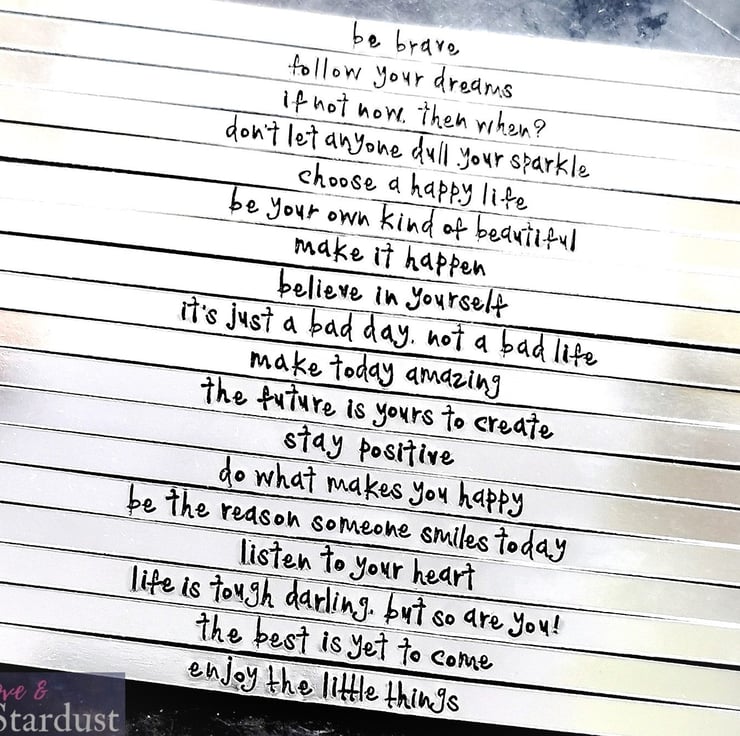 be brave
follow your dreams
if not now, then when?
don't let anyone dull your sparkle
choose a happy life
be your own kind of beautiful
make it happen
believe in yourself
it's just a bad day, not a bad life
make today amazing
the future is yours to create
stay positive
do what makes you happy
be the reason someone smiles today
listen to your heart
life is tough darling, but so are you!
the best is yet to come
enjoy the little things
&
Stardust